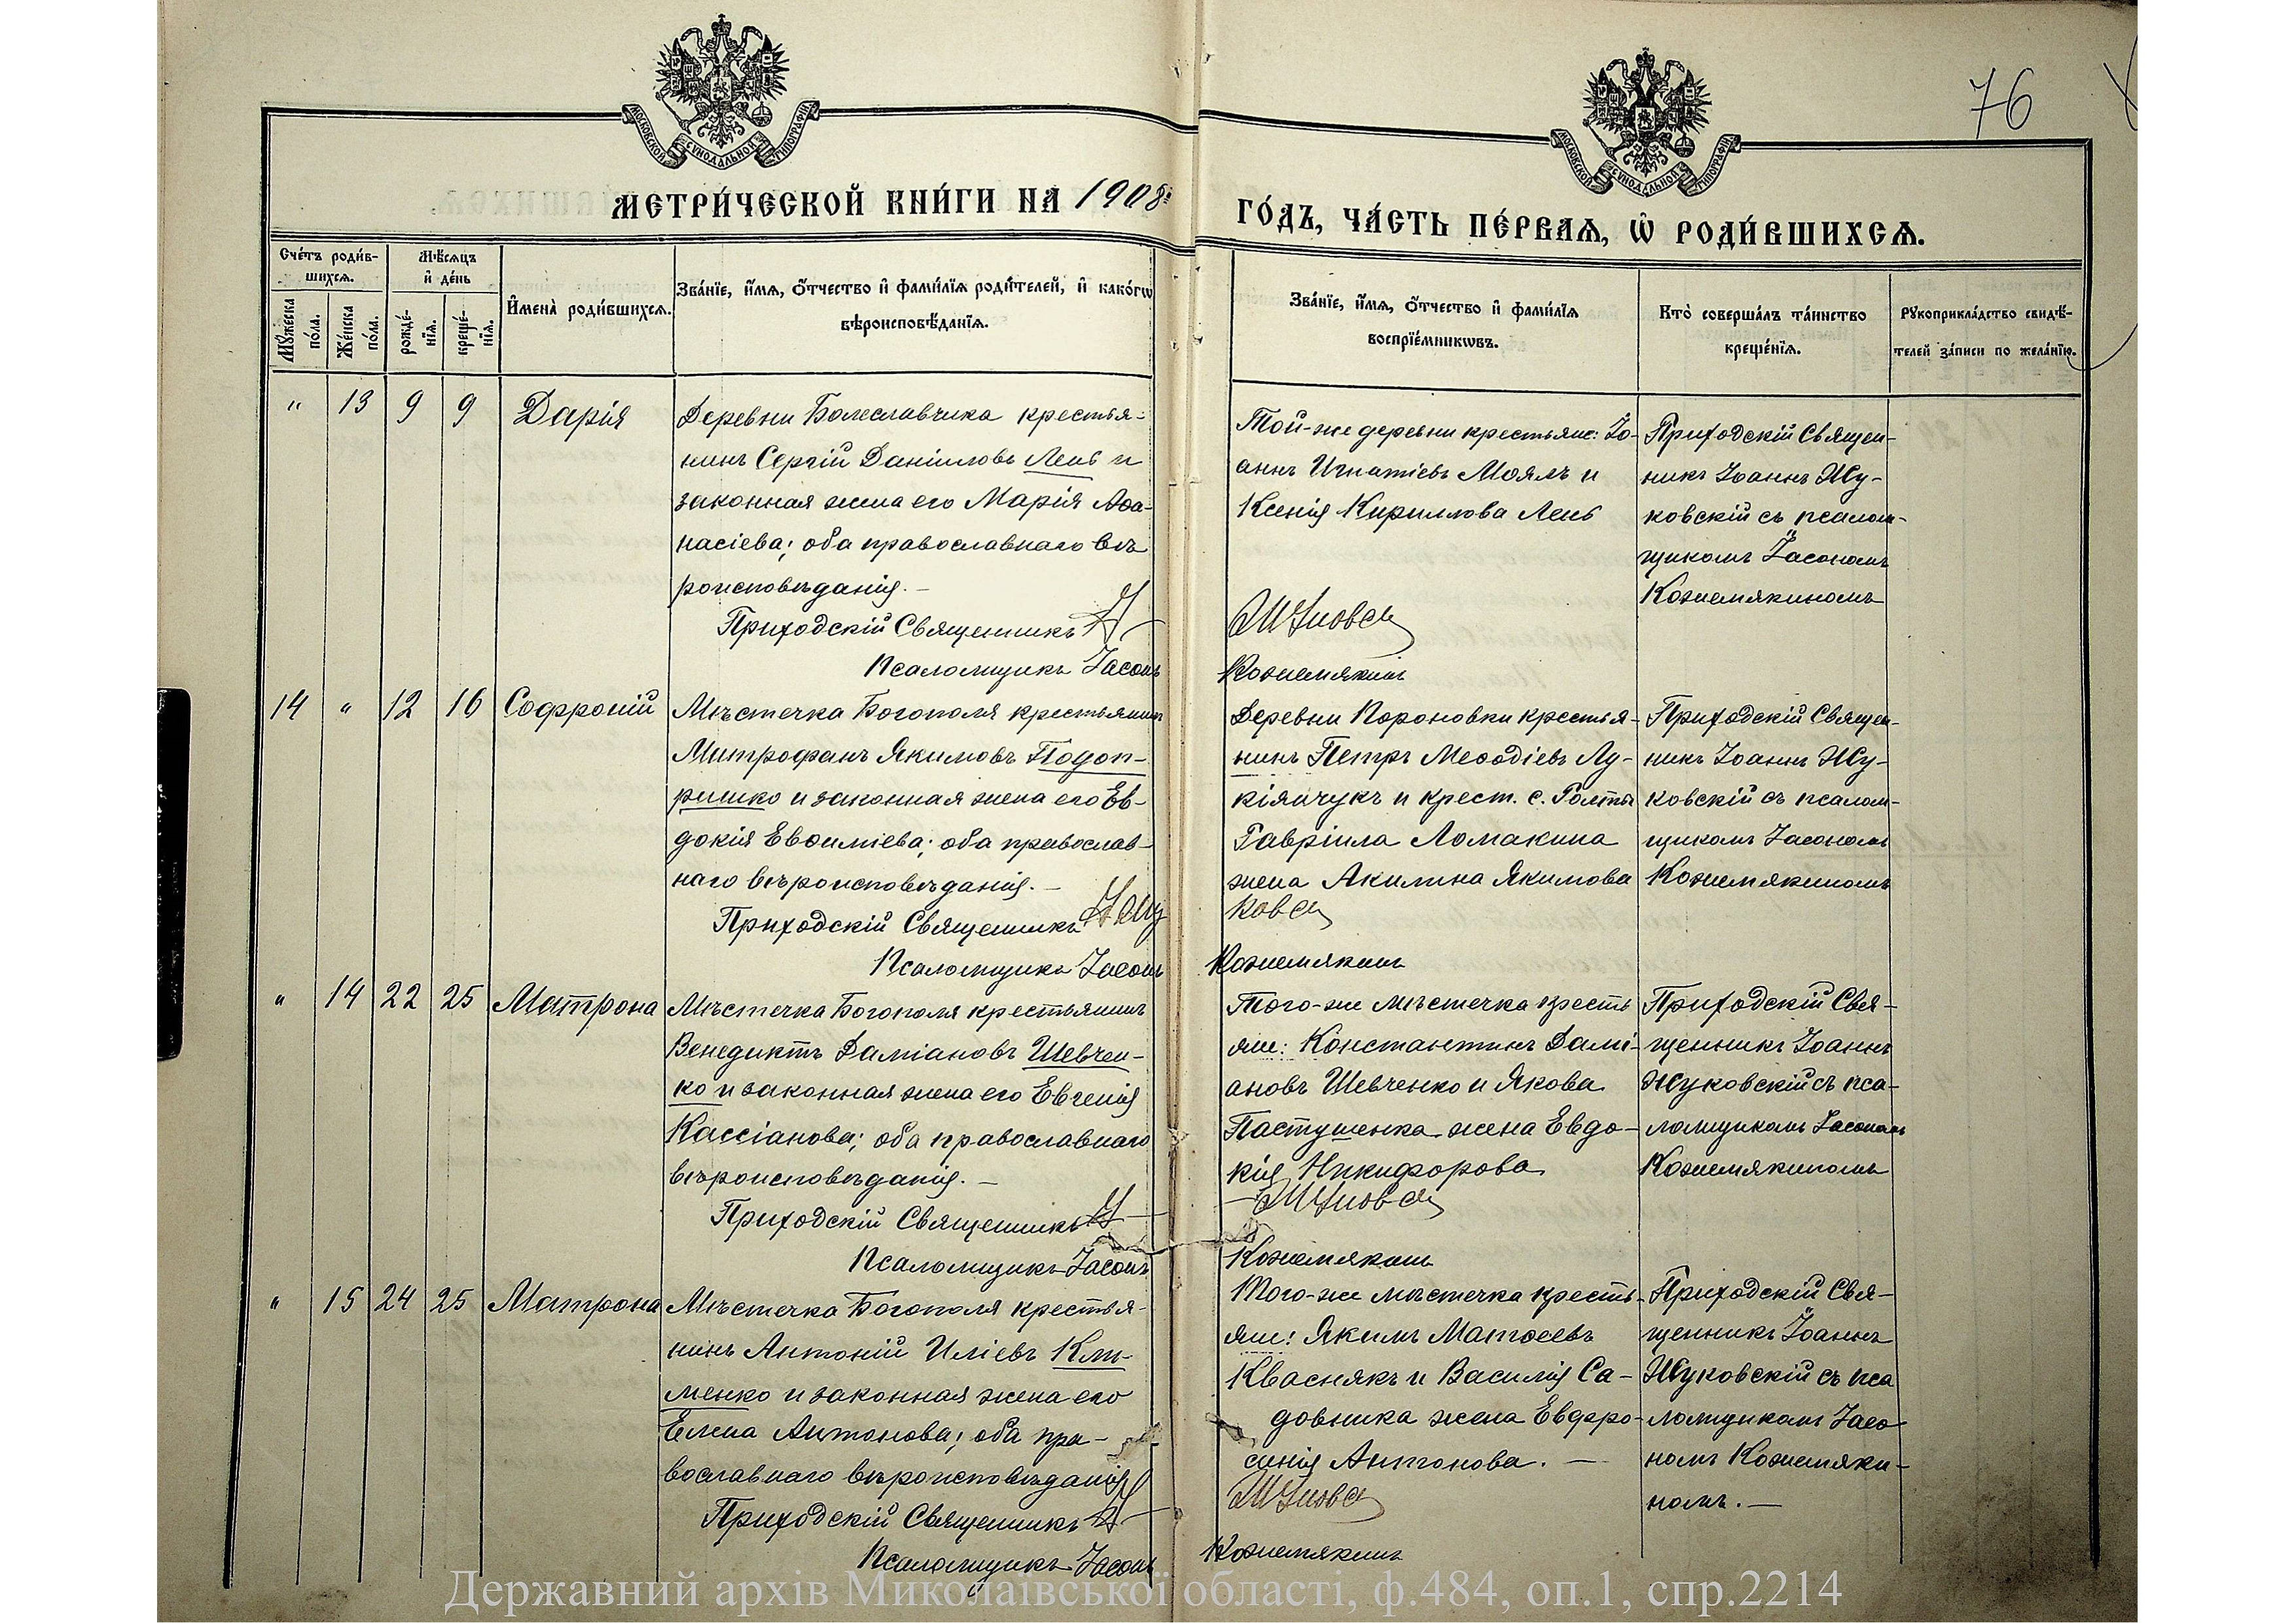 76
МОСКОВСКОЙ СѴНОДАЛЬНОЙ ТИПОГРАФІИ
МОСКОВСКОЙ СѴНОДАЛЬНОЙ ТИПОГРАФІИ
МЕТРИ́ЧЕСКОЙ КНИ́ГИ НА 1908й
ГО́ДЪ, ЧА́СТЬ ПЕ́РВАѦ, Ѡ҆ РОДИ́ВШИХСѦ.
Сче́тъ роди́в-
шихсѧ.
Мꙋ́жеска по́ла.
Же́нска по́ла.
Мѣ́сѧцъ и҆ де́нь
рожде́-нїѧ.
креще́-нїѧ.
И҆менà роди́вшихсѧ.
Зва́нїе, и҆́мѧ, ѻ҆́тчество и҆ фами́лїѧ роди́телей, и҆ како́гѡ
вѣроисповѣ́данїѧ.
Зва́нїе, и҆́мѧ, ѻ҆́тчество и҆ фами́лїѧ
воспрїе́мникѡвъ.
Кто̀ соверша́лъ та́инство
креще́нїѧ.
Рꙋкоприкла́дство свидѣ́-
телей за́писи по жела́нїю.
" 13 9 9 Дарія
Деревни Болеславчика крестья-
нинъ Сергій Даніиловъ Лень и
законная жена его Марія Аѳа-
насіева; оба православнаго вѣ
роисповѣданія. –
Приходскій Священникъ
Псаломщикъ Іасонъ
Той-же деревни крестьяне: Іо-
аннъ Игнатіевъ Моялъ и
Ксенія Кириллова Лень
Кожемякинъ
Приходскій Священ-
никъ Іоаннъ Жу-
ковскій съ псалом-
щикомъ Іасономъ
Кожемякиномъ
14 " 12 16 Софроній
Мѣстечка Богополя крестьянинъ
Митрофанъ Якимовъ Подоп-
ришко и законная жена его Ев-
докія Евѳиміева; оба православ-
наго вѣроисповѣданія. –
Приходскій Священникъ
Псаломщикъ Іасонъ
Деревни Пороновки крестья-
нинъ Петръ Меѳодіевъ Лу-
кіянчукъ и крест. с. Голты
Гавріила Ломакина
жена Акилина Якимова
Кожемякинъ
Приходскій Священ-
никъ Іоаннъ Жу-
ковскій съ псалом-
щикомъ Іасономъ
Кожемякиномъ
" 14 22 25 Матрона
Мѣстечка Богополя крестьянинъ
Венедиктъ Даміановъ Шевчен-
ко и законная жена его Евгенія
Кассіанова; оба православнаго
вѣроисповѣданія. –
Приходскій Священникъ
Псаломщикъ Іасонъ
Того-же мѣстечка кресть
яне: Константинъ Дамі-
ановъ Шевченко и Якова
Пастушенка жена Евдо-
кія Никифорова
Кожемякинъ
Приходскій Свя-
щенникъ Іоаннъ
Жуковскій съ пса-
ломщикомъ Іасономъ
Кожемякиномъ
" 15 24 25 Матрона
Мѣстечка Богополя крестья-
нинъ Антоній Иліевъ Кли-
менко и законная жена его
Елена Антонова; оба пра-
вославнаго вѣроисповѣданія
Приходскій Священникъ
Псаломщикъ Іасонъ
Того-же мѣстечка кресть-
яне: Якимъ Матѳеевъ
Кваснякъ и Василія Са-
довника жена Евфро-
синія Антонова. –
Кожемякинъ
Приходскій Свя-
щенникъ Іоаннъ
Жуковскій съ пса
ломщикомъ Іасо
номъ Кожемяки-
номъ. –
Державний архів Миколаївської області, ф.484, оп.1, спр.2214